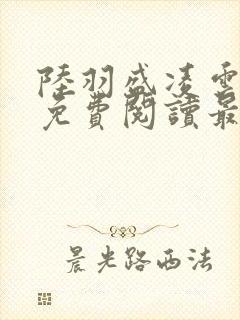 陸羽盛凌雲
免費閱讀最
晨光路西法